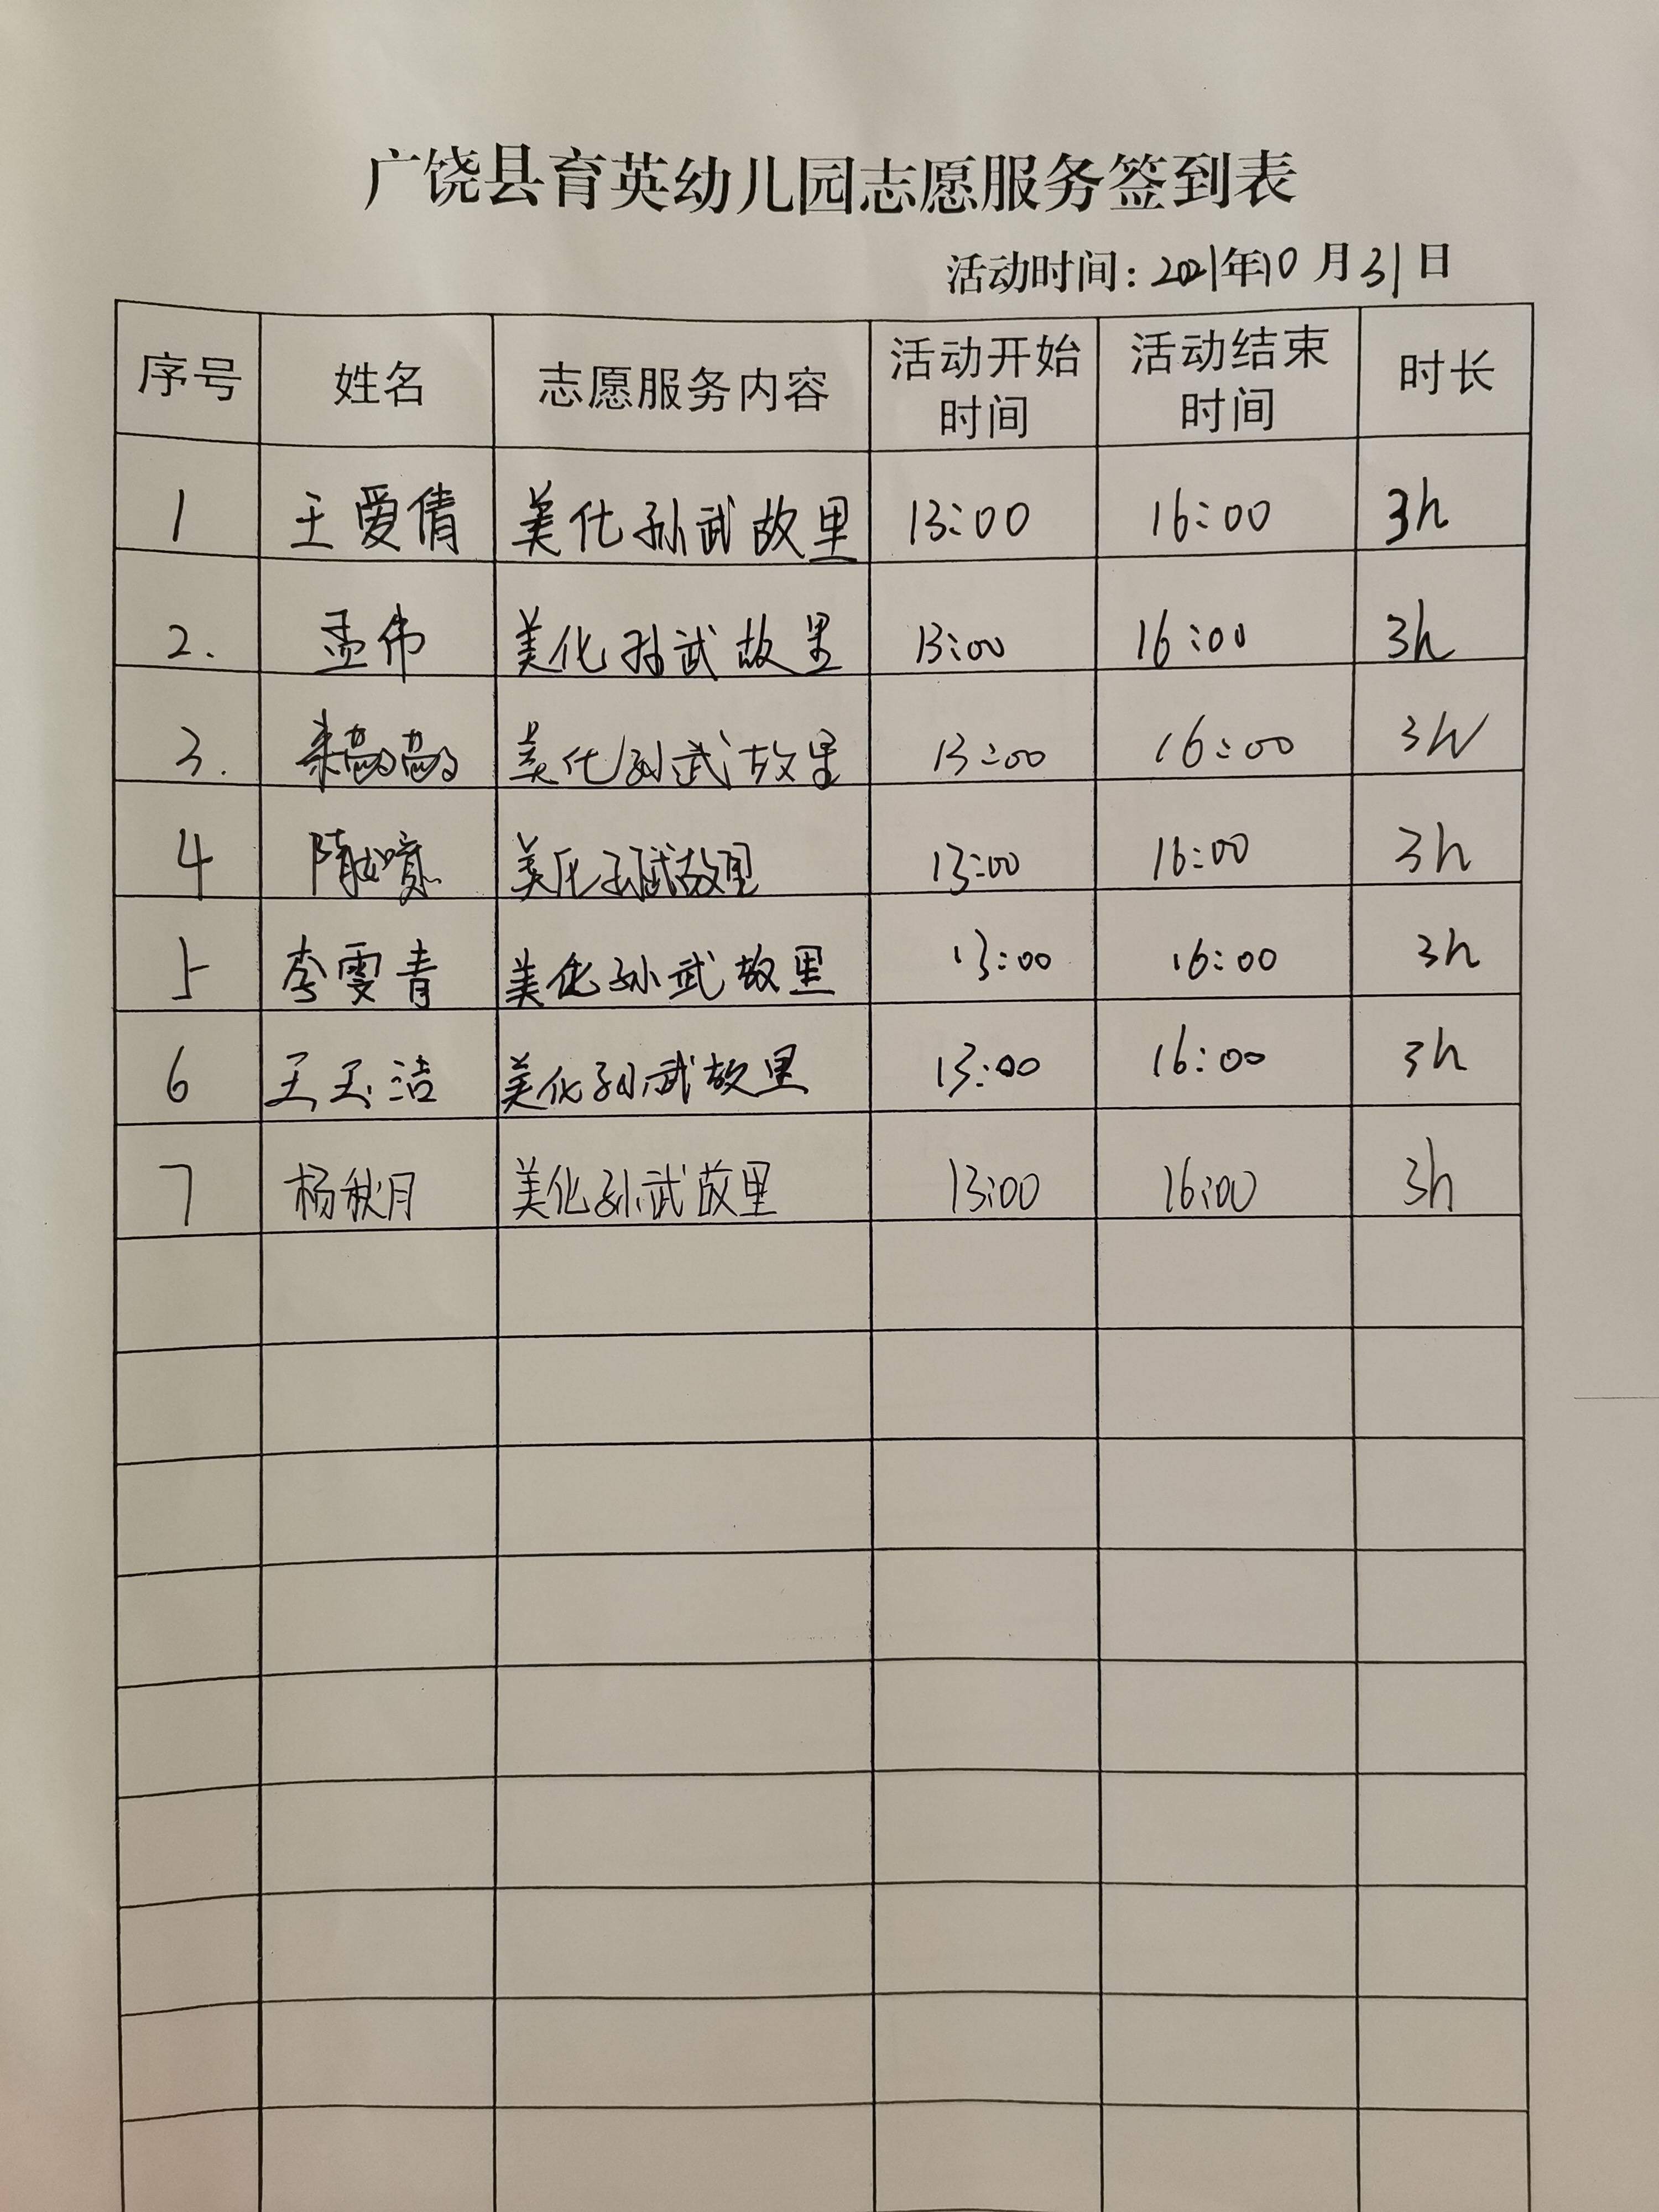 广饶县育英幼儿园志愿服务签到表
活动时间：2021年10月31日
序号 姓名 志愿服务内容 活动开始时间 活动结束时间 时长
1 王爱倩 美化孙武故里 13:00 16:00 3h
2. 孟伟 美化孙武故里 13:00 16:00 3h
3. 美化孙武故里 13:00 16:00 3h
4 美化孙武故里 13:00 16:00 3h
5 李雯青 美化孙武故里 13:00 16:00 3h
6 王玉洁 美化孙武故里 13:00 16:00 3h
7 杨秋月 美化孙武故里 13:00 16:00 3h